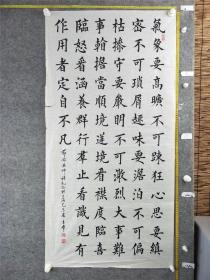 氣象要高曠不可踈狂心思要縝
密不可瑣屑趣味要澹泊不可偏
枯操守要嚴明不可激烈大事難
事看擔當順境逆境看襟度臨喜
臨怒看涵養群行羣止看識見有
作用者定自不凡